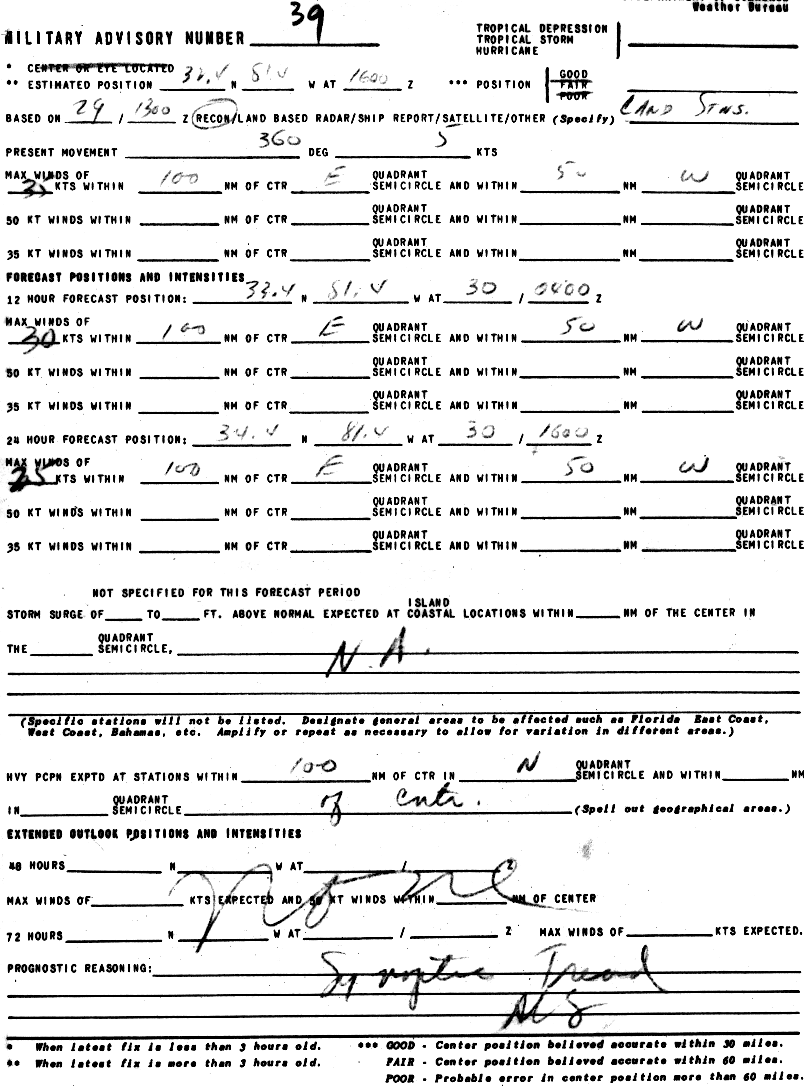 Weather Bureau
39
MILITARY ADVISORY NUMBER
TROPICAL DEPRESSION
TROPICAL STORM
HURRICANE
* CENTER OR EYE LOCATED
** ESTIMATED POSITION 32.4 N 81.4 W AT 1600 Z *** POSITION GOOD FAIR POOR
BASED ON 29 / 1300 Z RECON/LAND BASED RADAR/SHIP REPORT/SATELLITE/OTHER (Specify) LAND STNS.
PRESENT MOVEMENT 360 DEG 5 KTS
MAX WINDS OF 35 KTS WITHIN 100 NM OF CTR E QUADRANT SEMICIRCLE AND WITHIN 50 NM W QUADRANT SEMICIRCLE
50 KT WINDS WITHIN NM OF CTR QUADRANT SEMICIRCLE AND WITHIN NM QUADRANT SEMICIRCLE
35 KT WINDS WITHIN NM OF CTR QUADRANT SEMICIRCLE AND WITHIN NM QUADRANT SEMICIRCLE
FORECAST POSITIONS AND INTENSITIES
12 HOUR FORECAST POSITION: 33.4 N 81.4 W AT 30 / 0400 Z
MAX WINDS OF 30 KTS WITHIN 100 NM OF CTR E QUADRANT SEMICIRCLE AND WITHIN 50 NM W QUADRANT SEMICIRCLE
50 KT WINDS WITHIN NM OF CTR QUADRANT SEMICIRCLE AND WITHIN NM QUADRANT SEMICIRCLE
35 KT WINDS WITHIN NM OF CTR QUADRANT SEMICIRCLE AND WITHIN NM QUADRANT SEMICIRCLE
24 HOUR FORECAST POSITION: 34.4 N 81.4 W AT 30 / 1600 Z
MAX WINDS OF 25 KTS WITHIN 100 NM OF CTR E QUADRANT SEMICIRCLE AND WITHIN 50 NM W QUADRANT SEMICIRCLE
50 KT WINDS WITHIN NM OF CTR QUADRANT SEMICIRCLE AND WITHIN NM QUADRANT SEMICIRCLE
35 KT WINDS WITHIN NM OF CTR QUADRANT SEMICIRCLE AND WITHIN NM QUADRANT SEMICIRCLE
NOT SPECIFIED FOR THIS FORECAST PERIOD
STORM SURGE OF TO FT. ABOVE NORMAL EXPECTED AT ISLAND COASTAL LOCATIONS WITHIN NM OF THE CENTER IN
THE QUADRANT SEMICIRCLE, N.A.
(Specific stations will not be listed. Designate general areas to be affected such as Florida East Coast,
West Coast, Bahamas, etc. Amplify or repeat as necessary to allow for variation in different areas.)
HVY PCPN EXPTD AT STATIONS WITHIN 100 NM OF CTR IN N QUADRANT SEMICIRCLE AND WITHIN NM
IN QUADRANT SEMICIRCLE of Cntr. (Spell out geographical areas.)
EXTENDED OUTLOOK POSITIONS AND INTENSITIES
48 HOURS N W AT / Z
None
MAX WINDS OF KTS EXPECTED AND 50 KT WINDS WITHIN NM OF CENTER
72 HOURS N W AT / Z MAX WINDS OF KTS EXPECTED.
PROGNOSTIC REASONING: Synoptic Trend
* When latest fix is less than 3 hours old. *** GOOD - Center position believed accurate within 30 miles.
** When latest fix is more than 3 hours old. FAIR - Center position believed accurate within 60 miles.
POOR - Probable error in center position more than 60 miles.